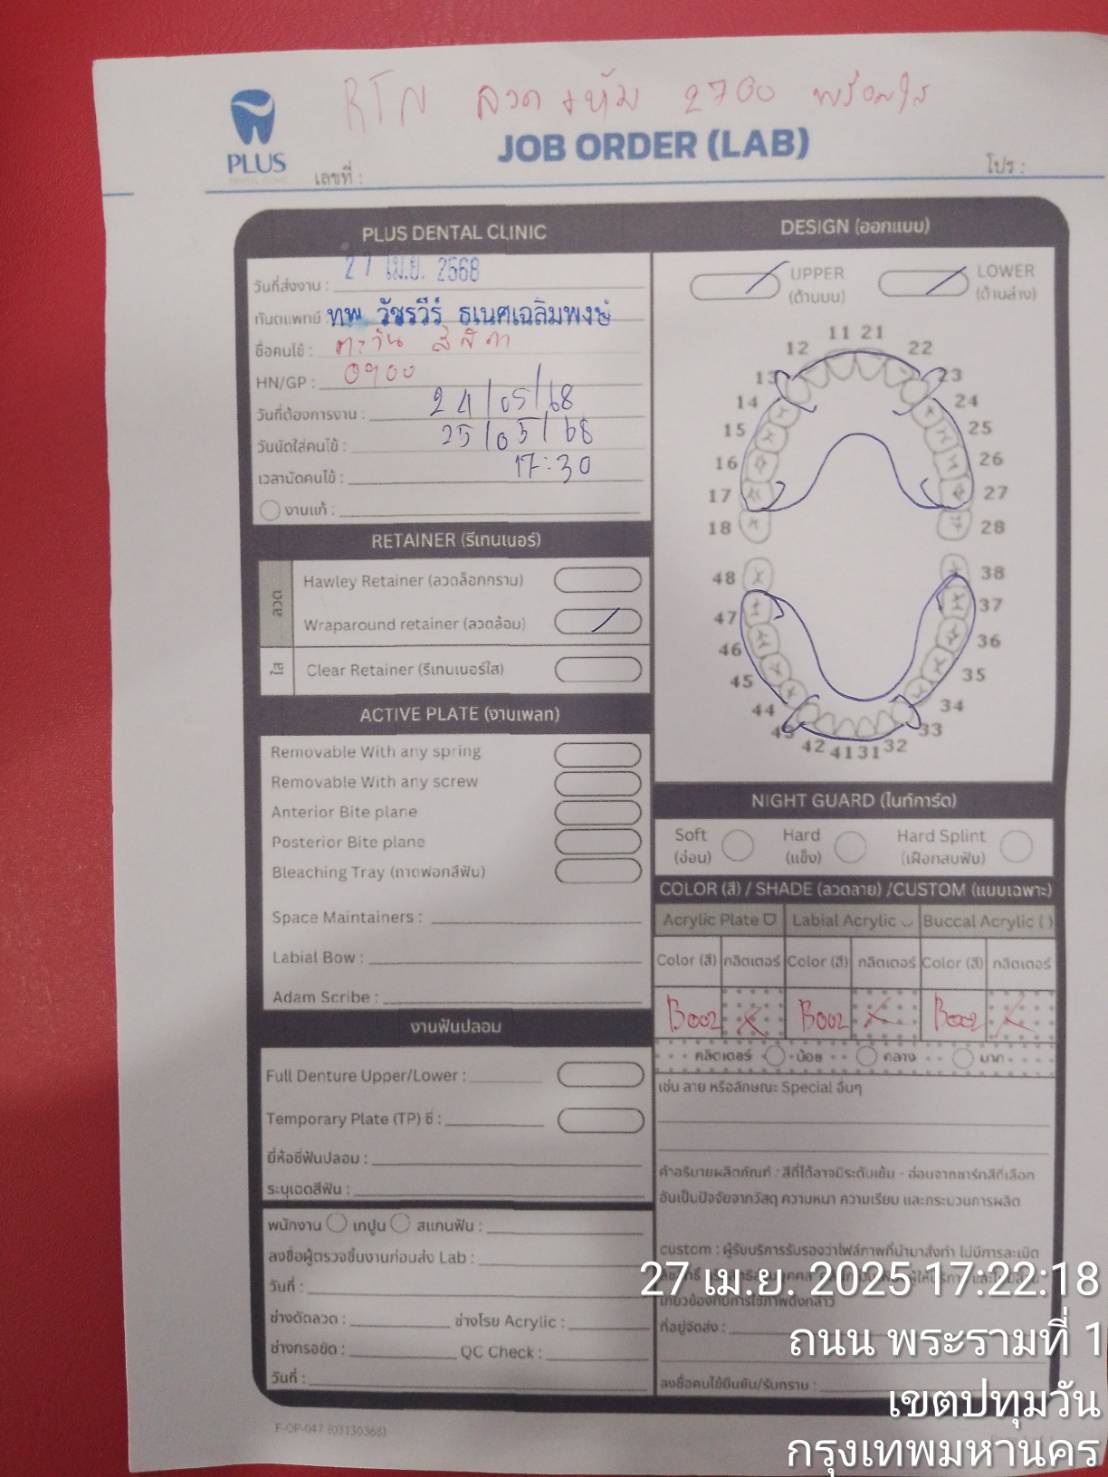 RTN ลวด + หุ้ม 2700 พร้อมใส่
PLUS
JOB ORDER (LAB)
เลขที่ :
โปร :
PLUS DENTAL CLINIC
วันที่ส่งงาน : 27 เม.ย. 2568
ทันตแพทย์ : ทพ. วัชรวีร์ ธเนศเฉลิมพงษ์
ชื่อคนไข้ :
HN/GP : 0900
วันที่ต้องการงาน : 24/05/68
วันนัดใส่คนไข้ : 25/05/68
เวลานัดคนไข้ : 17:30
งานแก้ :
RETAINER (รีเทนเนอร์)
ลวด
Hawley Retainer (ลวดล็อกกราม)
Wraparound retainer (ลวดล้อม)
ใส
Clear Retainer (รีเทนเนอร์ใส)
ACTIVE PLATE (งานเพลท)
Removable With any spring
Removable With any screw
Anterior Bite plane
Posterior Bite plane
Bleaching Tray (ถาดฟอกสีฟัน)
Space Maintainers :
Labial Bow :
Adam Scribe :
งานฟันปลอม
Full Denture Upper/Lower :
Temporary Plate (TP) ซี่ :
ยี่ห้อซี่ฟันปลอม :
ระบุเฉดสีฟัน :
พนักงาน เทปูน สแกนฟัน :
ลงชื่อผู้ตรวจชิ้นงานก่อนส่ง Lab :
วันที่ :
ช่างดัดลวด : ช่างโรย Acrylic :
ช่างกรอขัด : QC Check :
วันที่ :
F-OP-047 (03130368)
DESIGN (ออกแบบ)
UPPER (ด้านบน)
LOWER (ด้านล่าง)
11 21
12 22
13 23
14 24
15 25
16 26
17 27
18 28
48 38
47 37
46 36
45 35
44 34
43 33
42 41 31 32
NIGHT GUARD (ไนท์การ์ด)
Soft (อ่อน)
Hard (แข็ง)
Hard Splint (เฝือกสบฟัน)
COLOR (สี) / SHADE (ลวดลาย) /CUSTOM (แบบเฉพาะ)
Acrylic Plate Labial Acrylic Buccal Acrylic ( )
Color (สี) กลิตเตอร์ Color (สี) กลิตเตอร์ Color (สี) กลิตเตอร์
B002 X B002 X B002 X
กลิตเตอร์ น้อย กลาง มาก
เช่น ลาย หรือลักษณะ Special อื่นๆ
คำอธิบายผลิตภัณฑ์ : สีที่ได้อาจมีระดับเข้ม - อ่อนจากชาร์ทสีที่เลือก
อันเป็นปัจจัยจากวัสดุ ความหนา ความเรียบ และกระบวนการผลิต
custom : ผู้รับบริการรับรองว่าไฟล์ภาพที่นำมาสั่งทำ ไม่มีการละเมิด
เกี่ยวข้องกับการใช้ภาพดังกล่าว
ที่อยู่จัดส่ง :
ลงชื่อคนไข้ยืนยัน/รับทราบ :
27 เม.ย. 2025 17:22:18
ถนน พระรามที่ 1
เขตปทุมวัน
กรุงเทพมหานคร